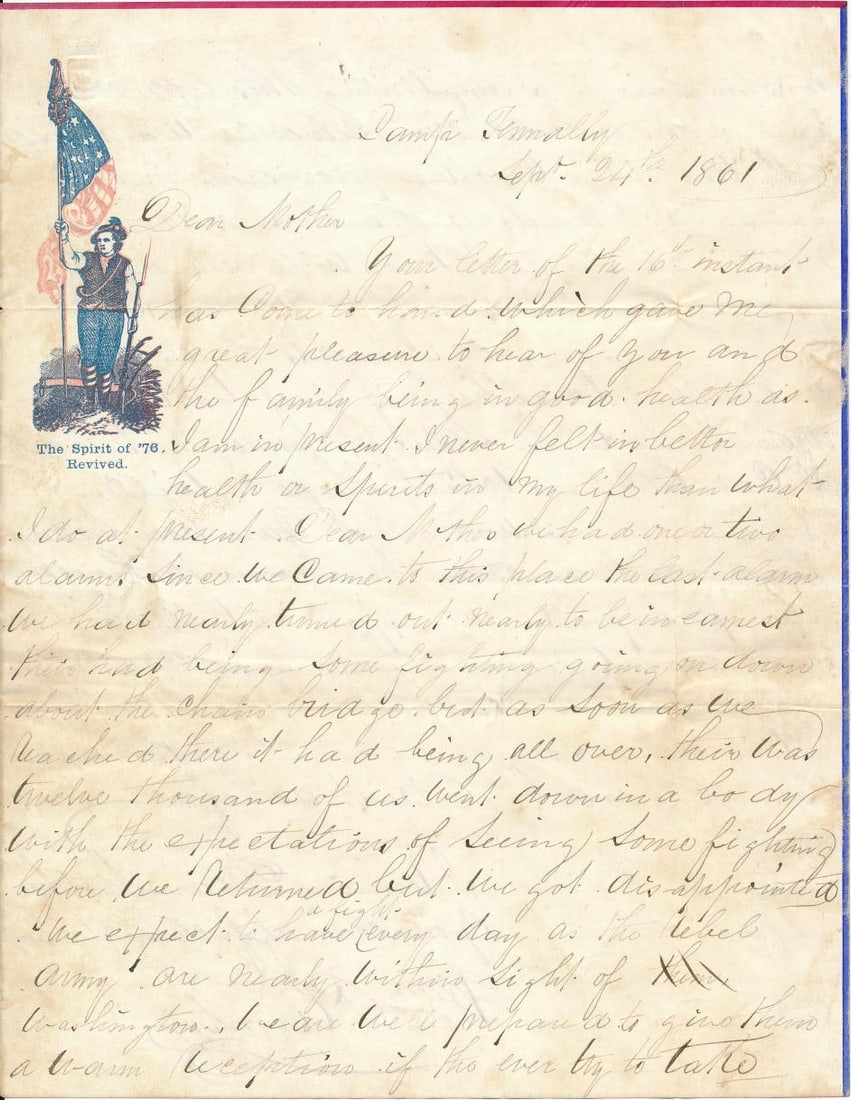 Camp Tennally
Sept. 24th. 1861
Dear Mother
Your letter of the 16th instant
has Come to hand which gave me
great pleasure to hear of you and
the family being in good health as
I am in present. I never felt in better
health or spirits in my life than what
I do at present. Dear Mother we had one or two
alarms since we Came to this place the last alarm
we had nearly turned out nearly to be in earnest
their had being some fighting going on down
about the chain bridge. but as soon as we
reached there it had being all over, their was
twelve thousand of us went down in a body
with the expectations of seeing some fighting
before we returned but we got disappointed
We expect to have a fight every day as the rebel
army are nearly within sight of them
Washington. We are well prepared to give them
a warm reception if the ever try to take
The Spirit of '76.
Revived.